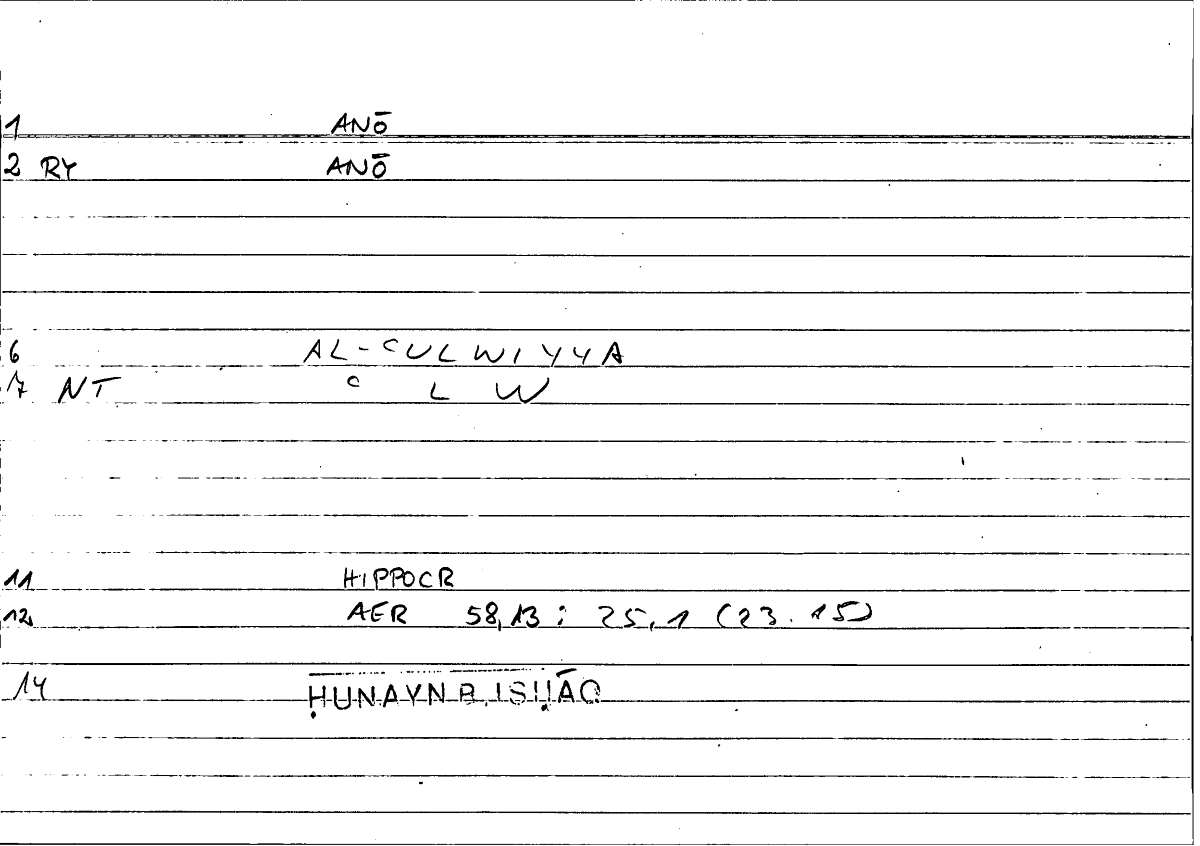 1 ANŌ
2 RY ANŌ
6 AL-ʿULWIYYA
7 NT ʿ L W
11 HIPPOCR
12 AER 58,13 : 25,1 (23.15)
14 ḤUNAYN B. ISḤĀQ